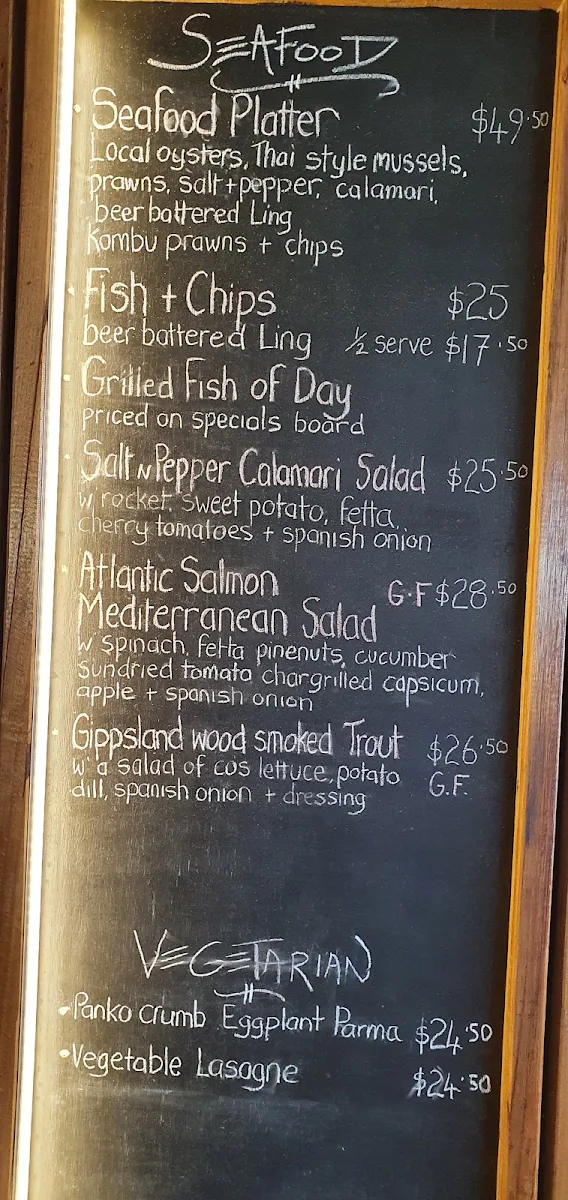 SEAFOOD
Seafood Platter $49.50
Local oysters, Thai style mussels,
prawns, salt+pepper, calamari,
beer battered Ling
Kombu prawns + chips
Fish + Chips $25
beer battered Ling ½ serve $17.50
Grilled Fish of Day
priced on specials board
Salt N Pepper Calamari Salad $25.50
w rocket, sweet potato, fetta,
cherry tomatoes + spanish onion
Atlantic Salmon G.F $28.50
Mediterranean Salad
w spinach, fetta pinenuts, cucumber
sundried tomato chargrilled capsicum,
apple + spanish onion
Gippsland wood smoked Trout $26.50
w a salad of cos lettuce, potato G.F.
dill, spanish onion + dressing
VEGETARIAN
Panko crumb Eggplant Parma $24.50
Vegetable Lasagne $24.50